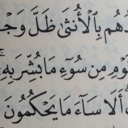 دُهُم بِٱلۡأُنثَىٰ ظَلَّ وَجۡ
وۡمِ مِن سُوٓءِ مَا بُشِّرَ بِهِۦٓۚ
ۗ أَلَا سَآءَ مَا يَحۡكُمُونَ